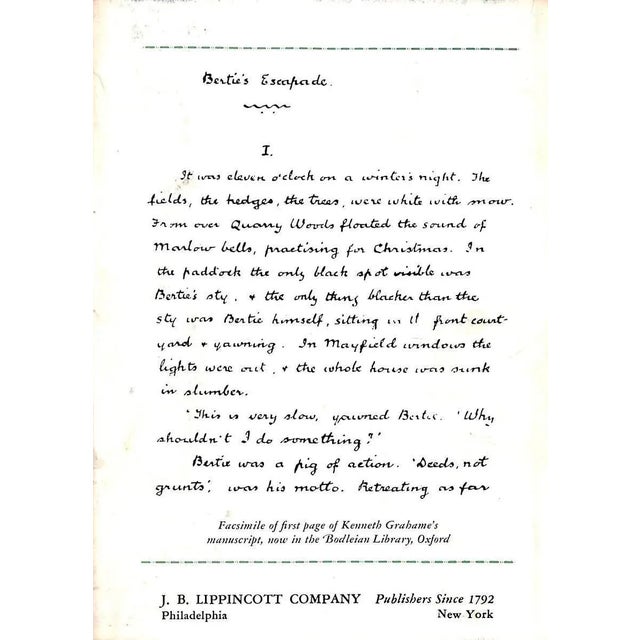 Bertie's Escapade.
I.
It was eleven o'clock on a winter's night. The
fields, the hedges, the trees, were white with snow.
From over Quarry Woods floated the sound of
Marlow bells, practising for Christmas. In
the paddock the only black spot visible was
Bertie's sty, & the only thing blacker than the
sty was Bertie himself, sitting in front court-
yard & yawning. In Mayfield windows the
lights were out, & the whole house was sunk
in slumber.
'This is very slow, yawned Bertie. 'Why
shouldn't I do something?'
Bertie was a pig of action. 'Deeds, not
grunts', was his motto. Retreating as far
Facsimile of first page of Kenneth Grahame's
manuscript, now in the Bodleian Library, Oxford
J. B. LIPPINCOTT COMPANY Publishers Since 1792
Philadelphia New York